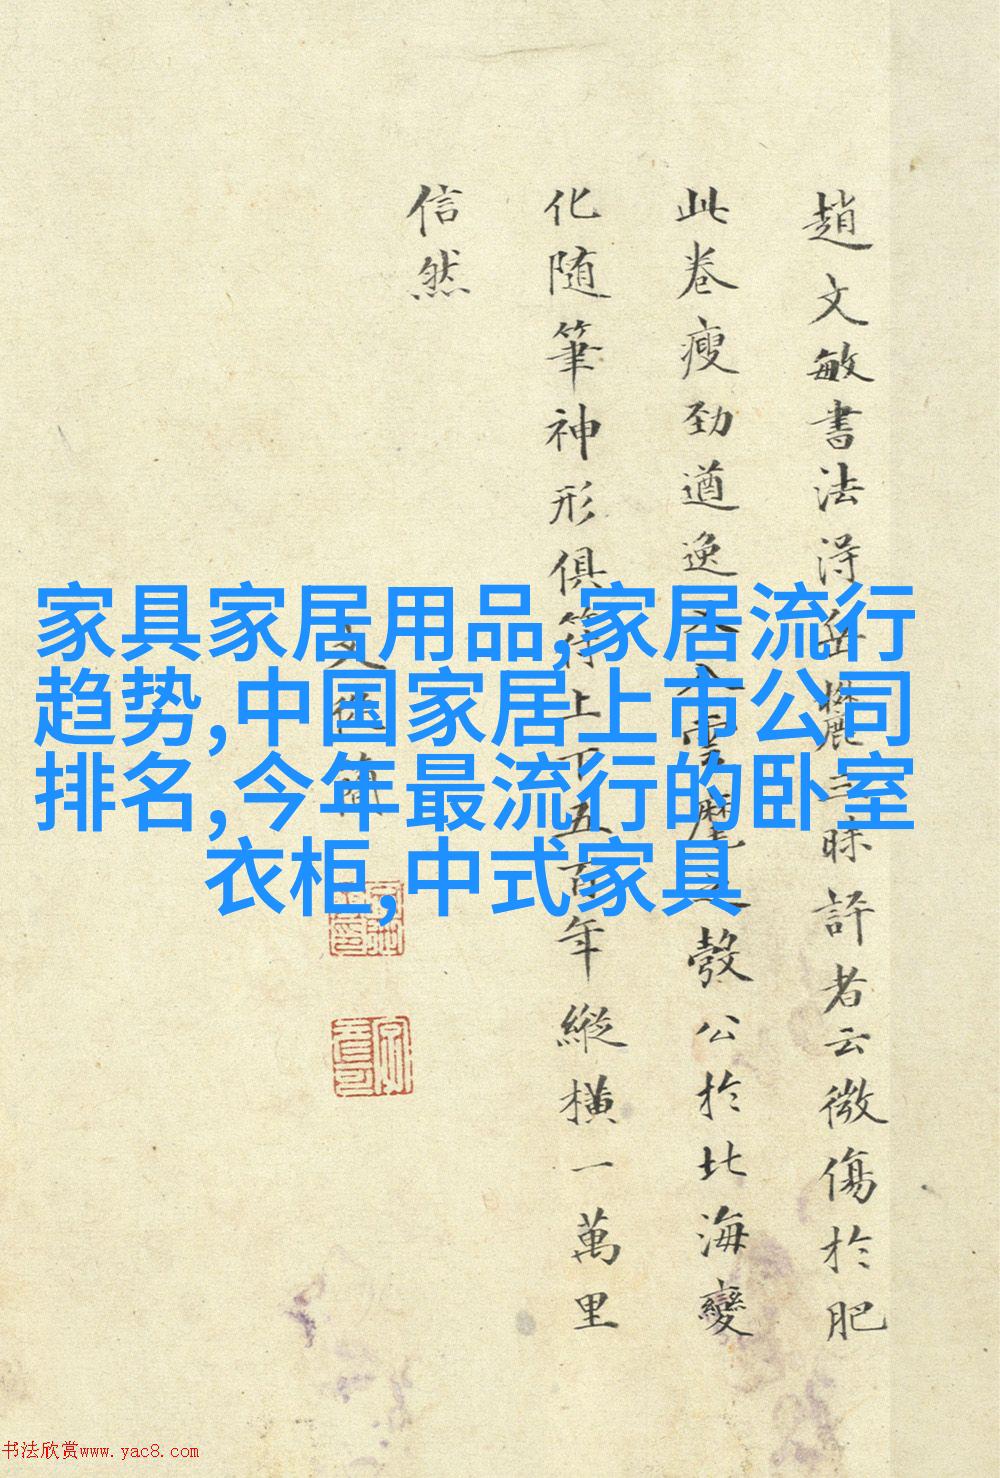 趙文敏書法淂岳麓三昧評者云微傷於肥
此卷瘦劲遒逸大入雲麾之彀公於北海變
化随筆神形俱符上下五百年縱橫一萬里
信然
文從簡
家具家居用品,家居流行
趋势,中国家居上市公司
排名,今年最流行的卧室
衣柜,中式家具
书法欣赏www.yac8.com